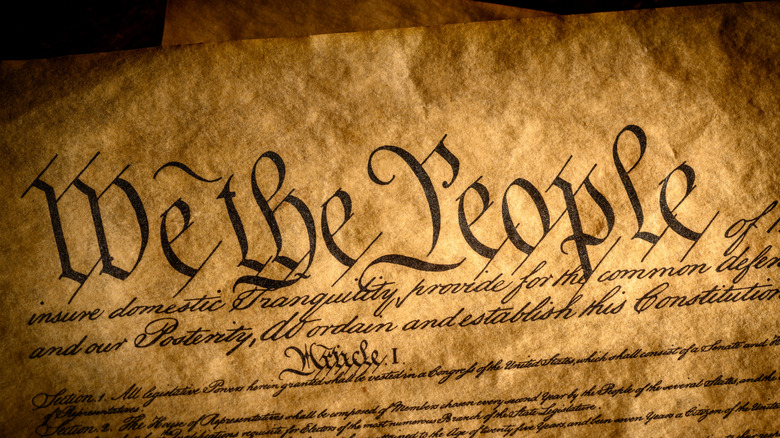 We the People of
insure domestic Tranquility, provide for the common defen
and our Posterity, do ordain and establish this Constitution
Article I.
Section 1. All legislative Powers herein granted shall be vested in a Congress of the United States, which shall consist of a Senate and H
of Representatives.
Section. 2. The House of Representatives shall be composed of Members chosen every second Year by the People of the several States, and the
requisite for Electors of the most numerous Branch of the State Legislature.
to the Age of twenty five Years, and been seven Years a Citizen of the United